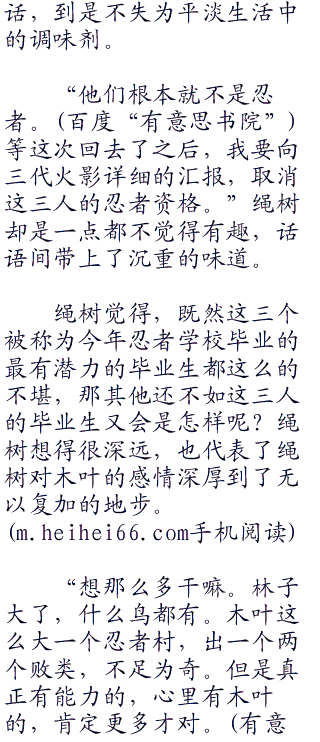 话，到是不失为平淡生活中
的调味剂。
“他们根本就不是忍
者。(百度“有意思书院”)
等这次回去了之后，我要向
三代火影详细的汇报，取消
这三人的忍者资格。”绳树
却是一点都不觉得有趣，话
语间带上了沉重的味道。
绳树觉得，既然这三个
被称为今年忍者学校毕业的
最有潜力的毕业生都这么的
不堪，那其他还不如这三人
的毕业生又会是怎样呢？绳
树想得很深远，也代表了绳
树对木叶的感情深厚到了无
以复加的地步。
(m.heihei66.com手机阅读)
“想那么多干嘛。林子
大了，什么鸟都有。木叶这
么大一个忍者村，出一个两
个败类，不足为奇。但是真
正有能力的，心里有木叶
的，肯定更多才对。(有意